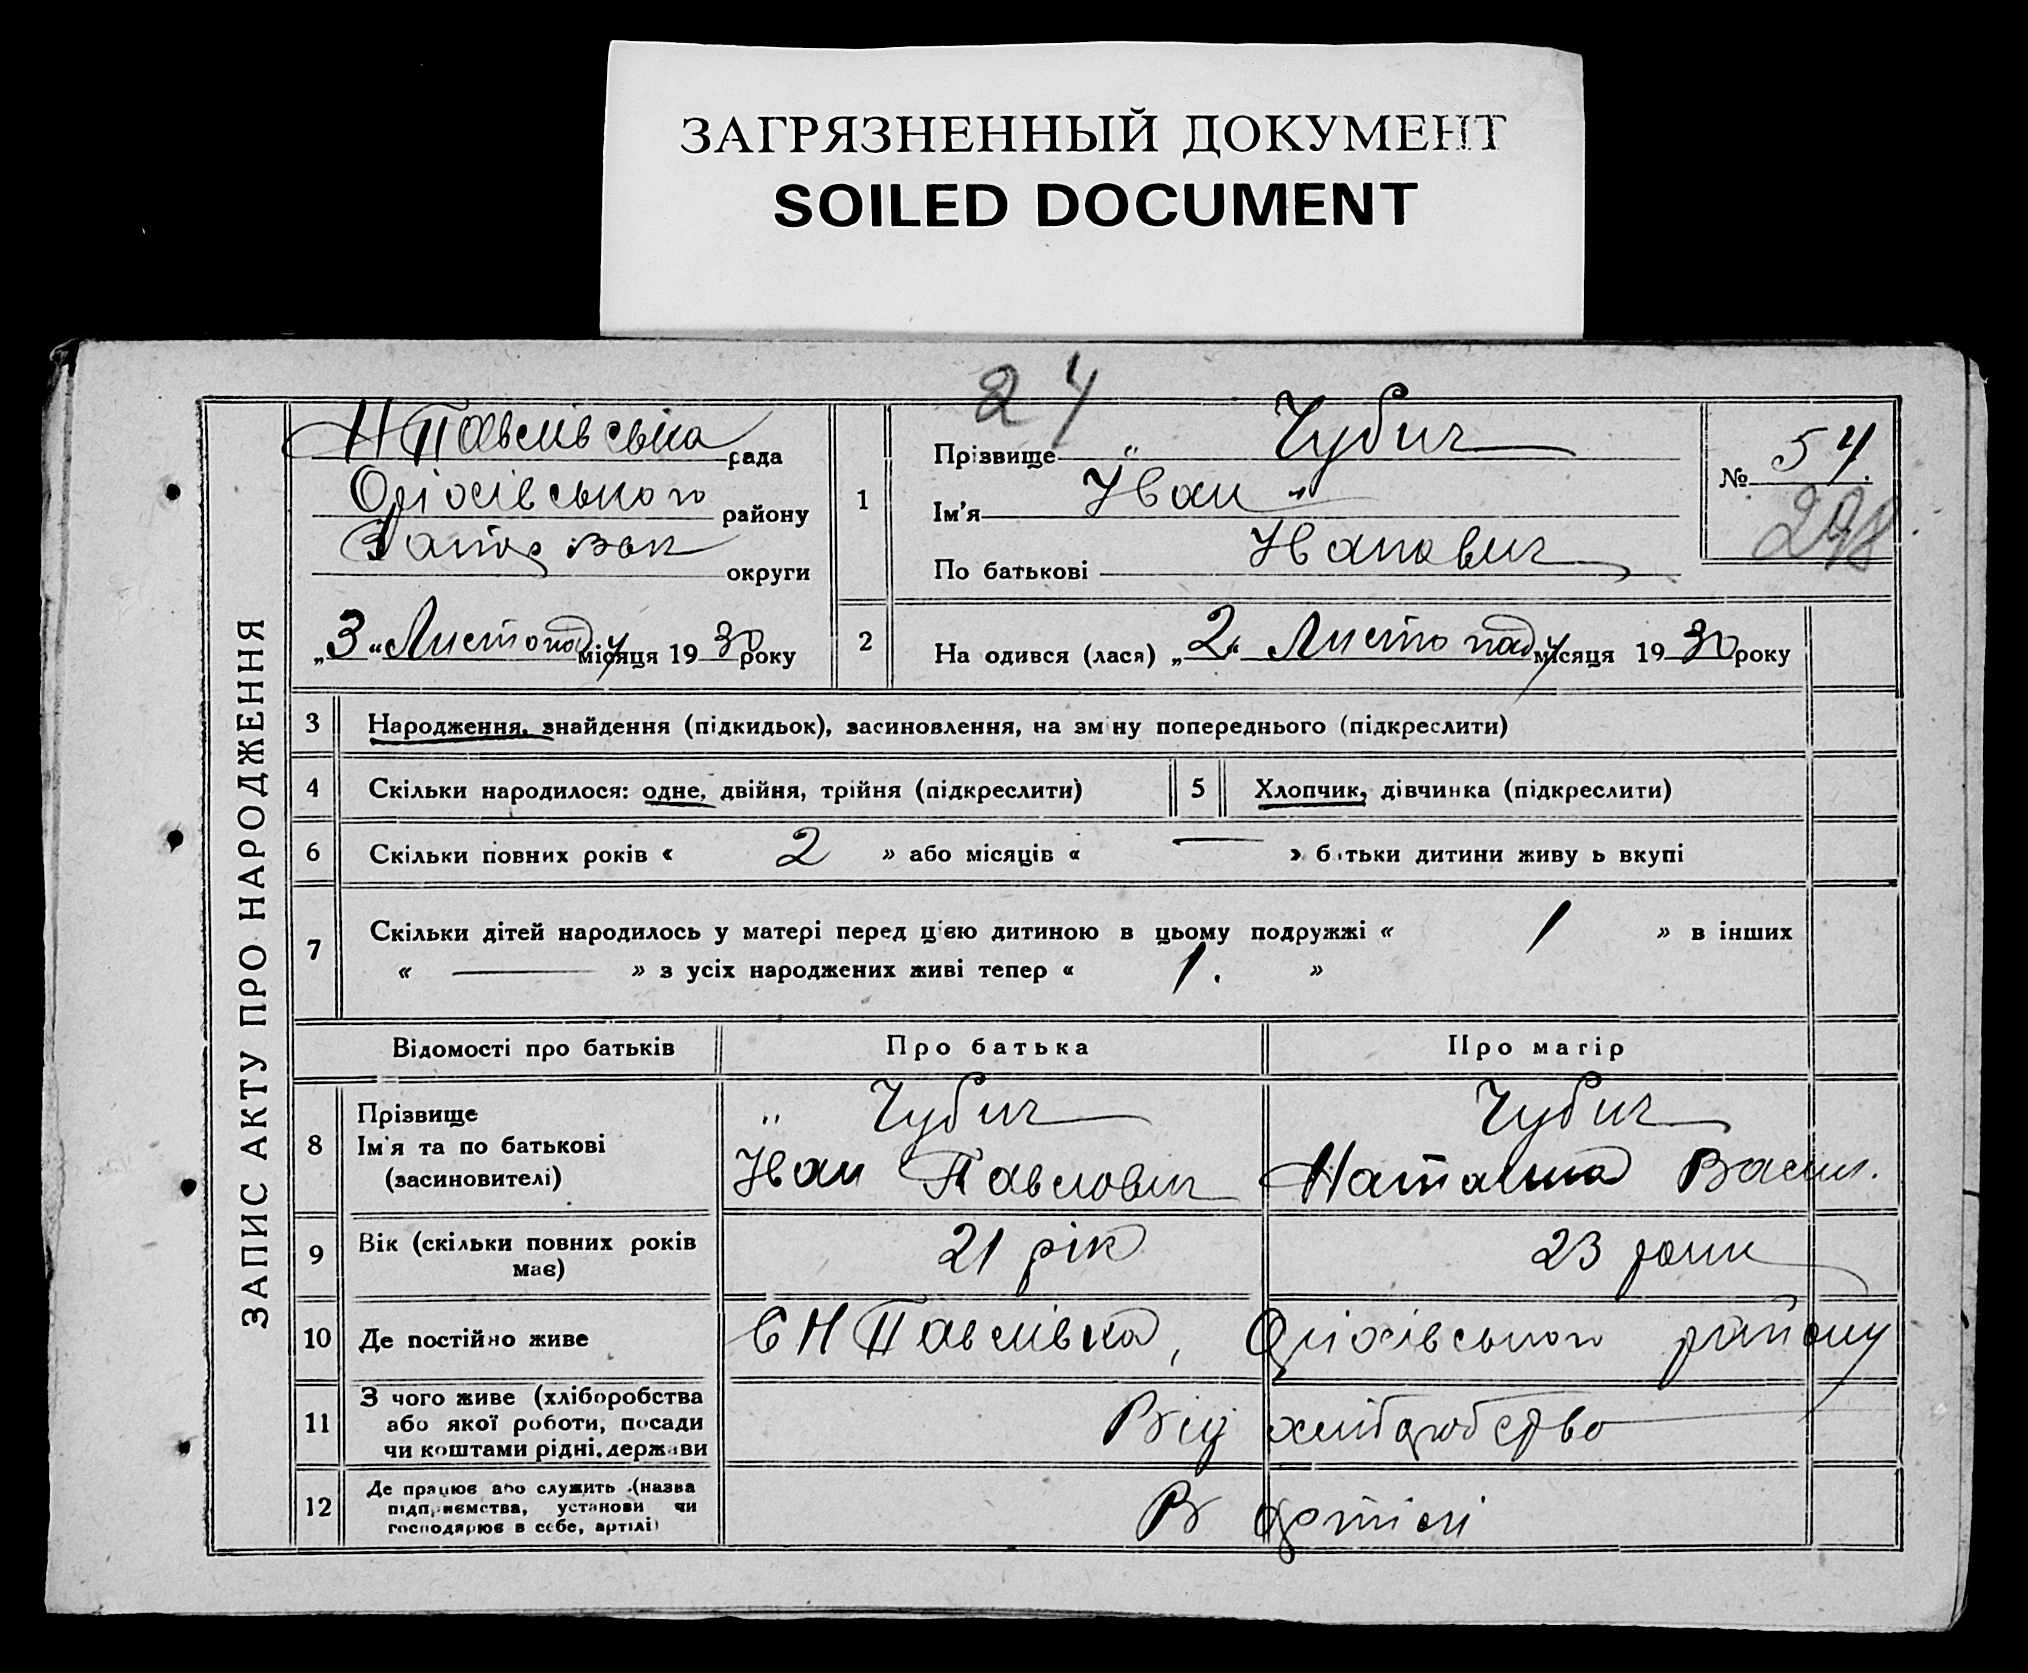 ЗАГРЯЗНЕННЫЙ ДОКУМЕНТ
SOILED DOCUMENT
24
ЗАПИС АКТУ ПРО НАРОДЖЕННЯ
Н Павлівська рада
Оріхівського району
Запорізьк округи
„3“ Листопаду місяця 1930 року
1
Прізвище „ Чубич
Ім'я Іван „
По батькові Іванович
№ 54.
298
2
На одився (лася) „2“ Листопаду місяця 1930 року
3 Народження, знайдення (підкидьок), засиновлення, на зм ну попереднього (підкреслити)
4 Скільки народилося: одне, двійня, трійня (підкреслити) 5 Хлопчик, дівчинка (підкреслити)
6 Скільки повних років « 2 » або місяців « — » б тьки дитини живу ь вкупі
7 Скільки дітей народилось у матері перед цією дитиною в цьому подружжі « 1 » в інших
« — » з усіх народжених живі тепер « 1. »
Відомості про батьків Про батька Про матір
8 Прізвище
Ім'я та по батькові
(засиновителі)
„ Чубич
Іван Павлович
Чубич
Наталка Васил.
9 Вік (скільки повних років
має)
21 рік 23 роки
10 Де постійно живе С Н Павлівка, Оріхівського району
11 З чого живе (хліборобства
або якої роботи, посади
чи коштами рідні, держави
Від хліборобство
12 Де працює або служить (назва
підприємства, установи чи
господарює в себе, артілі)
В артілі